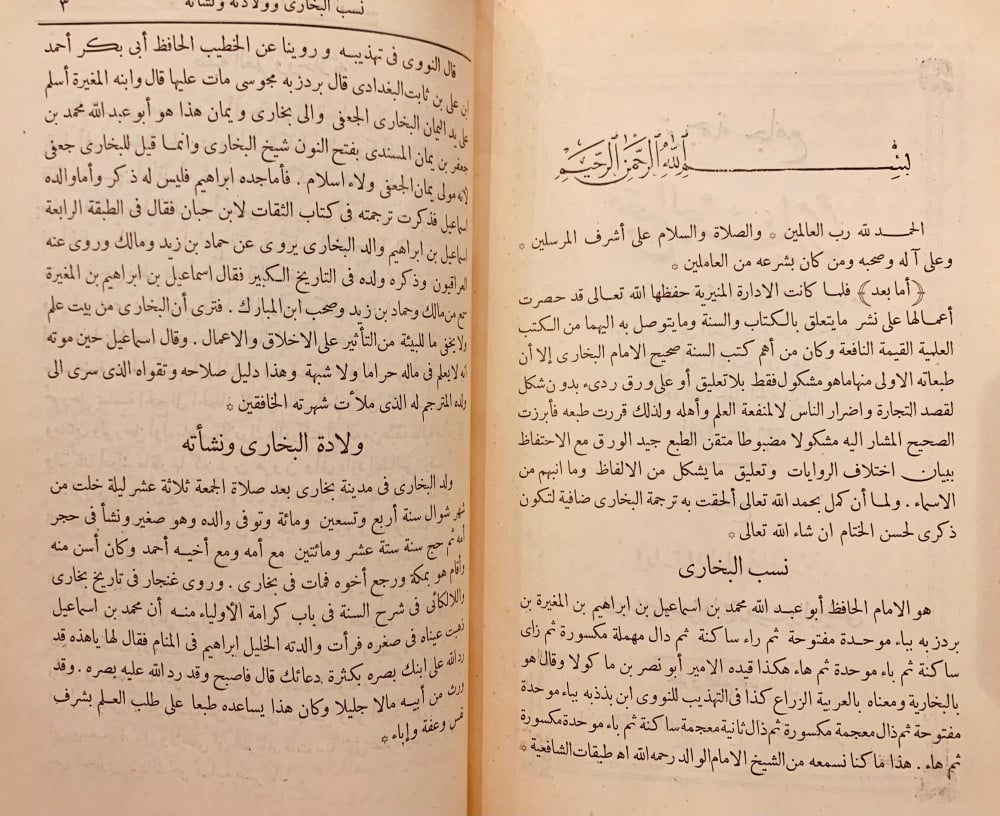 بسم الله الرحمن الرحيم
الحمد لله رب العالمين * والصلاة والسلام على أشرف المرسلين *
وعلى آله وصحبه ومن كان بشرعه من العاملين *
﴿أما بعد﴾ فلما كانت الادارة المنيرية حفظها الله تعالى قد حصرت
أعمالها على نشر ما يتعلق بالكتاب والسنة وما يتوصل به اليهما من الكتب
العلمية القيمة النافعة وكان من أهم كتب السنة صحيح الامام البخارى إلا أن
طبعاته الاولى منها ما هو مشكول فقط بلا تعليق أو على ورق ردىء بدون شكل
لقصد التجارة واضرار الناس لا لمنفعة العلم وأهله ولذلك قررت طبعه فأبرزت
الصحيح المشار اليه مشكولا مضبوطا متقن الطبع جيد الورق مع الاحتفاظ
ببيان اختلاف الروايات وتعليق ما يشكل من الالفاظ وما انبهم من
الاسماء . ولما أن كمل بحمد الله تعالى ألحقت به ترجمة البخارى ضافية لتكون
ذكرى لحسن الختام ان شاء الله تعالى *
نسب البخارى
هو الامام الحافظ أبو عبد الله محمد بن اسماعيل بن ابراهيم بن المغيرة بن
بردزبه بباء موحدة مفتوحة ثم راء ساكنة ثم دال مهملة مكسورة ثم زاى
ساكنة ثم باء موحدة ثم هاء هكذا قيده الامير أبو نصر بن ماكولا وقال هو
بالبخارية ومعناه بالعربية الزراع كذا فى التهذيب للنووى ابن بذذبه بباء موحدة
مفتوحة ثم ذال معجمة مكسورة ثم ذال ثانية معجمة ساكنة ثم باء موحدة مكسورة
ثم هاء . هذا ما كنا نسمعه من الشيخ الامام الوالد رحمه الله اه طبقات الشافعية *
نسب البخارى وولادته ونشأته ٣
قال النووى فى تهذيبه وروينا عن الخطيب الحافظ أبى بكر أحمد
ابن على بن ثابت البغدادى قال بردزبه مجوسى مات عليها قال وابنه المغيرة أسلم
على يد اليمان البخارى الجعفى والى بخارى ويمان هذا هو أبو عبد الله محمد بن
جعفر بن يمان المسندى بفتح النون شيخ البخارى وانما قيل للبخارى جعفى
لانه مولى يمان الجعفى ولاء اسلام . فأما جده ابراهيم فليس له ذكر وأما والده
اسماعيل فذكرت ترجمته فى كتاب الثقات لابن حبان فقال فى الطبقة الرابعة
اسماعيل بن ابراهيم والد البخارى يروى عن حماد بن زيد ومالك وروى عنه
العراقيون وذكره ولده فى التاريخ الكبير فقال اسماعيل بن ابراهيم بن المغيرة
سمع من مالك وحماد بن زيد وصحب ابن المبارك . فترى أن البخارى من بيت علم
ولا يخفى ما للبيئة من التأثير على الاخلاق والاعمال . وقال اسماعيل حين موته
انه لا يعلم فى ماله حراما ولا شبهة وهذا دليل صلاحه وتقواه الذى سرى الى
ولده المترجم له الذى ملأت شهرته الخافقين *
ولادة البخارى ونشأته
ولد البخارى فى مدينة بخارى بعد صلاة الجمعة ثلاثة عشر ليلة خلت من
شهر شوال سنة أربع وتسعين ومائة وتوفى والده وهو صغير ونشأ فى حجر
أمه ثم حج سنة ستة عشر ومائتين مع أمه ومع أخيه أحمد وكان أسن منه
وأقام هو بمكة ورجع أخوه فمات فى بخارى . وروى غنجار فى تاريخ بخارى
واللالكائى فى شرح السنة فى باب كرامة الأولياء منه أن محمد بن اسماعيل
ذهبت عيناه فى صغره فرأت والدته الخليل ابراهيم فى المنام فقال لها ياهذه قد
رد الله على ابنك بصره بكثرة دعائك قال فاصبح وقد رد الله عليه بصره . وقد
ورث من أبيه مالا جليلا وكان هذا يساعده طبعا على طلب العلم بشرف
نفس وعفة وإباء *